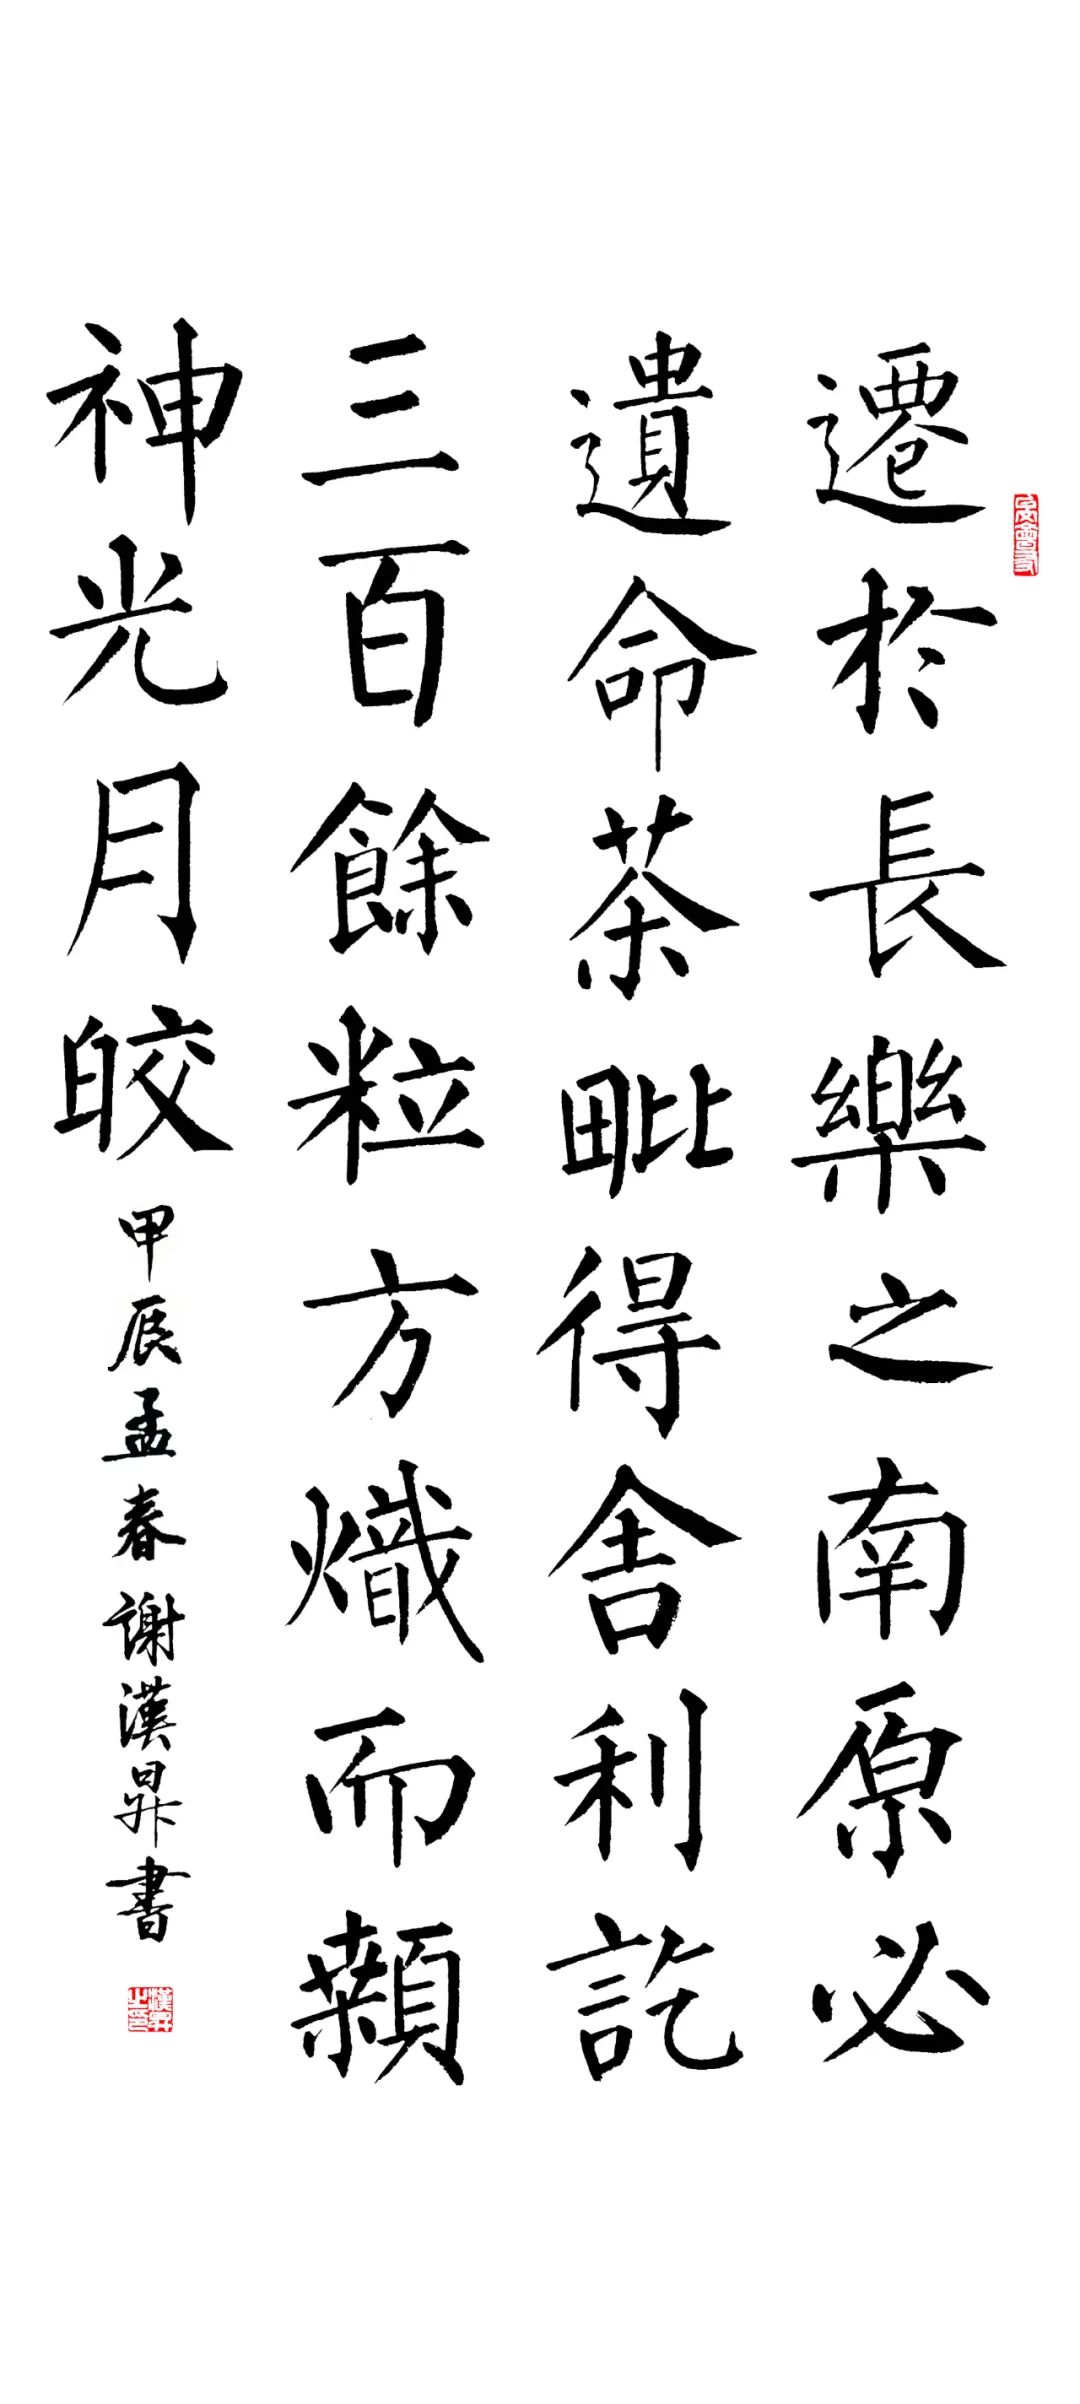 遷於長樂之南原必
遺命茶毗得舍利訖
三百餘粒方熾而顙
神光月皎
甲辰孟春謝漢昇書
漢昇之印